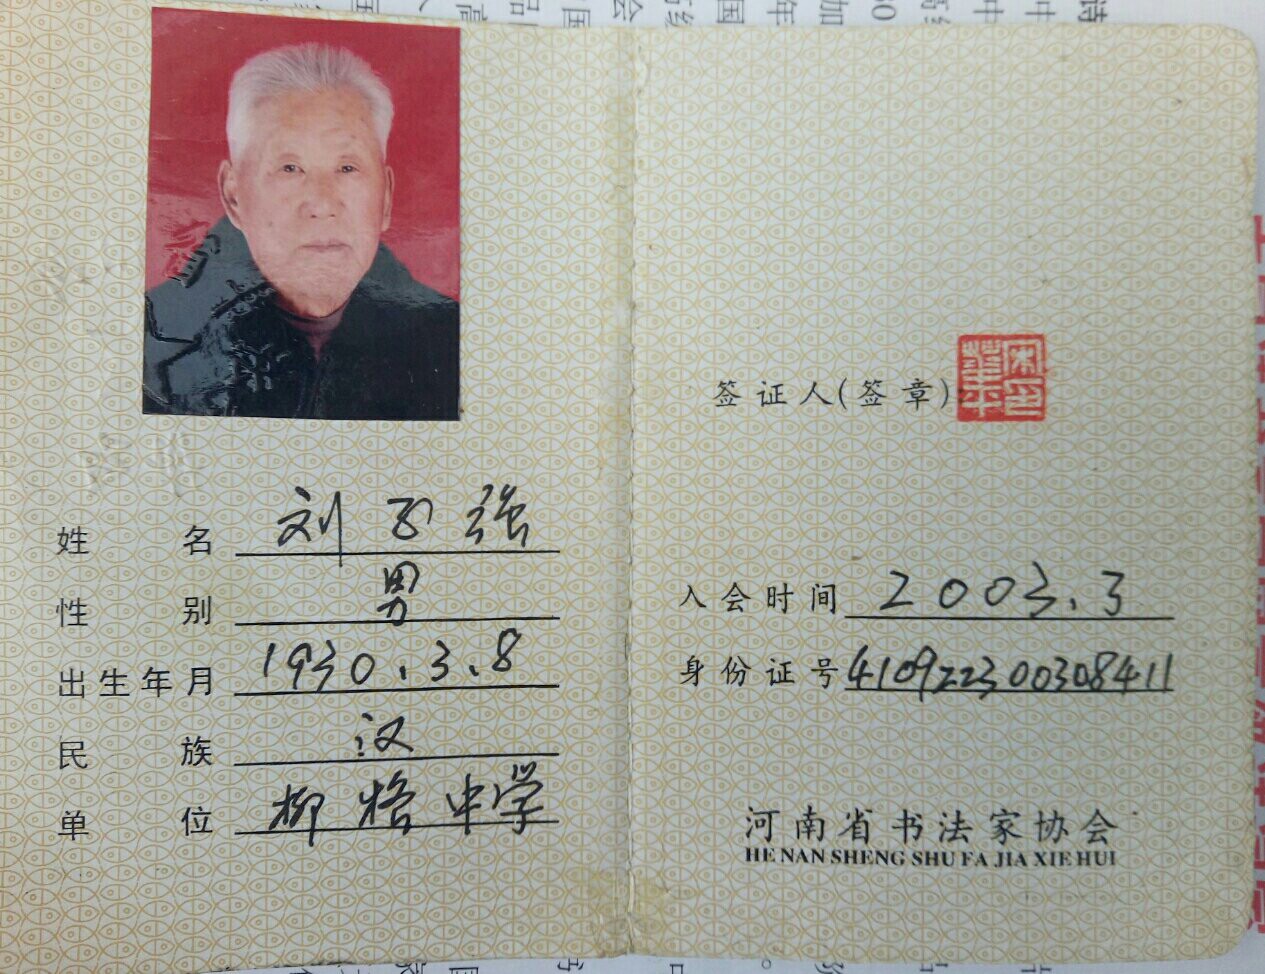 姓名 刘子强
性别 男
出生年月 1930.3.8
民族 汉
单位 柳格中学
签证人(签章)
入会时间 2003.3
身份证号 410922300308411
河南省书法家协会
HE NAN SHENG SHU FA JIA XIE HUI